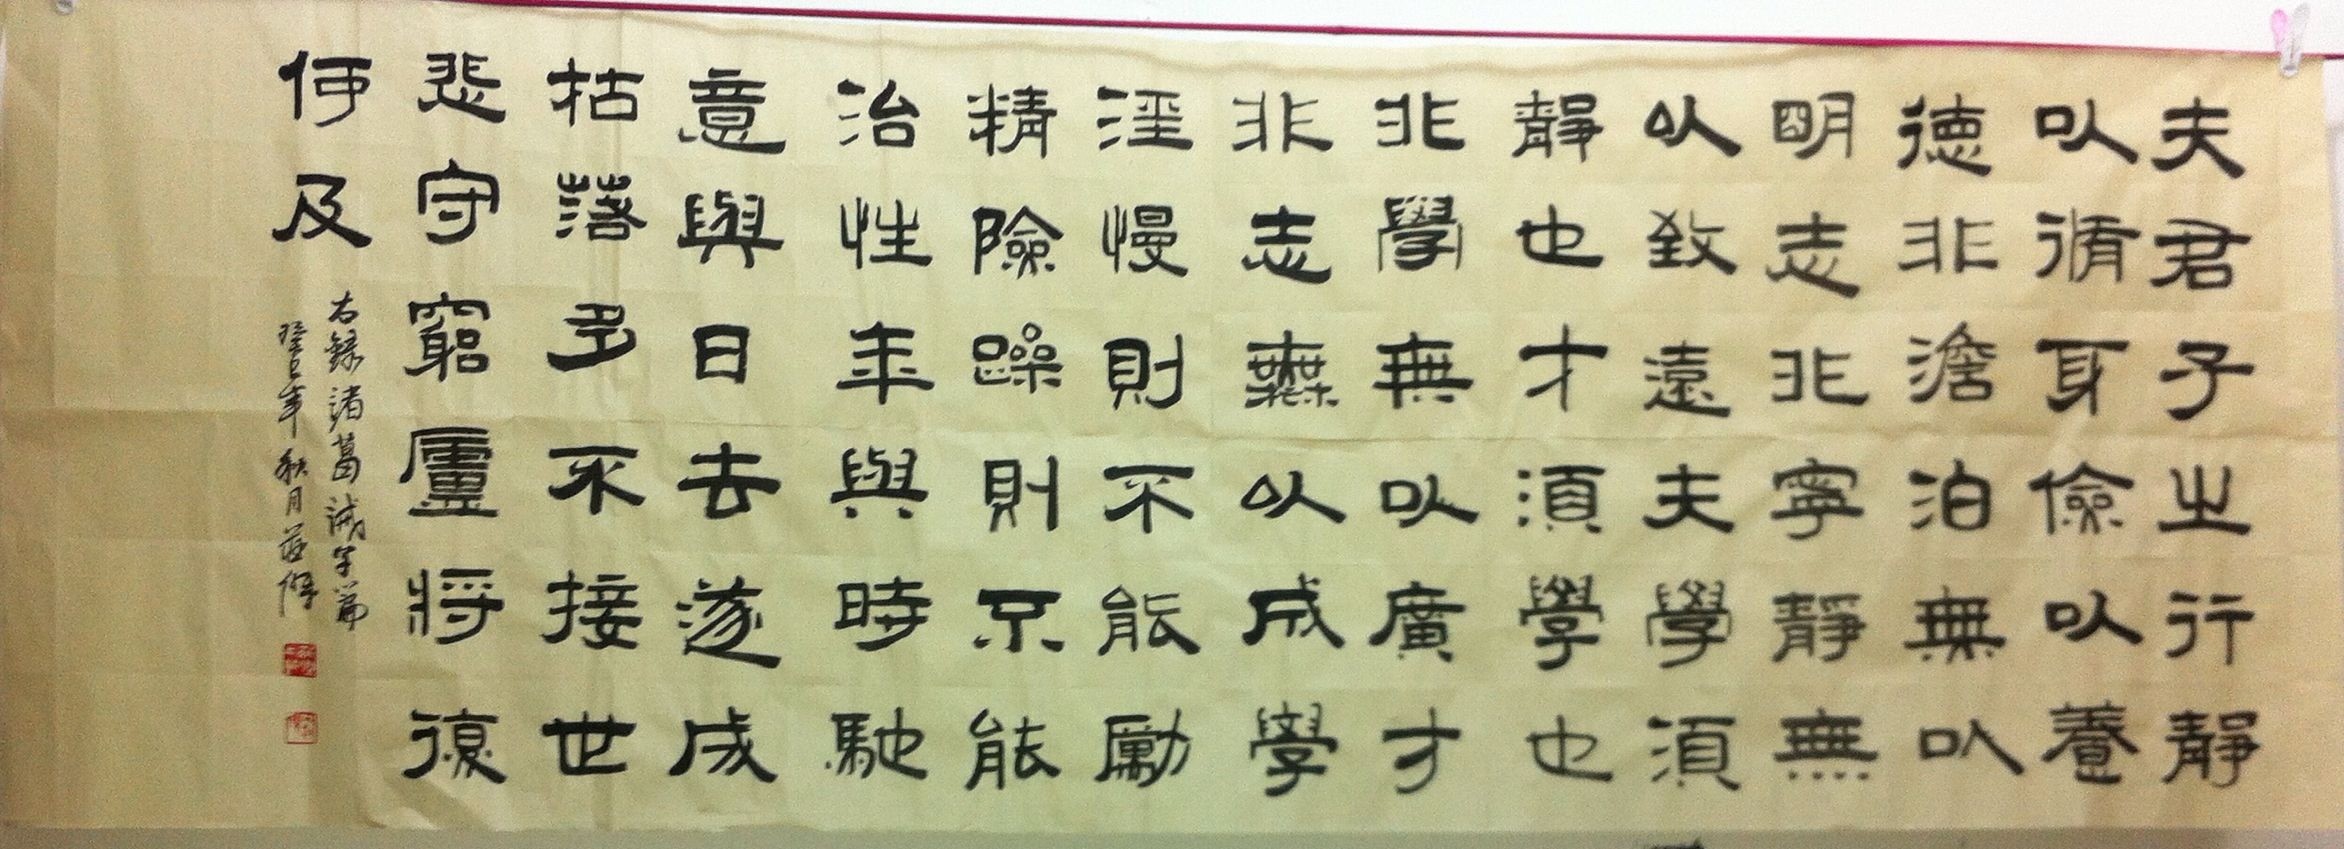 夫君子之行静
以脩身儉以養
徳非澹泊無以
明志非寧静無
以致遠夫學須
静也才須學也
非學無以廣才
非志無以成學
淫慢則不能勵
精險躁則不能
治性年與時馳
意與日去遂成
枯落多不接世
悲守窮廬將復
何及
右錄諸葛誡子篇
癸巳年秋月